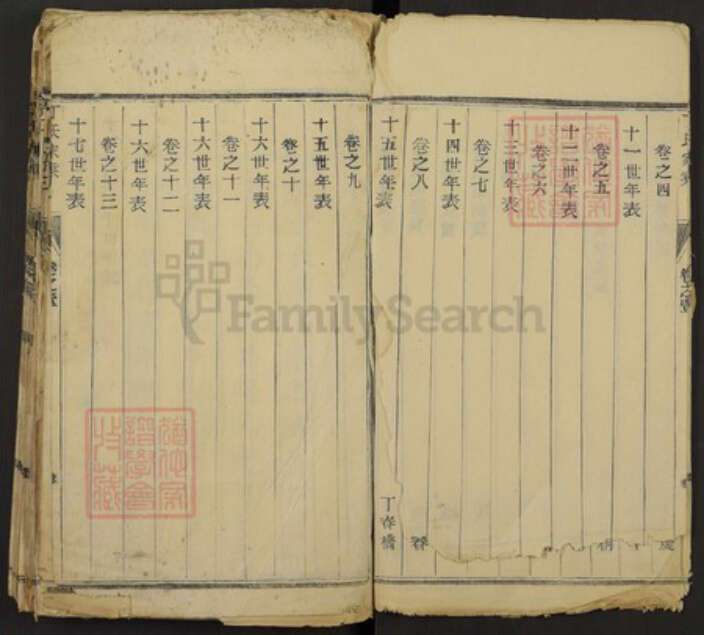 卷之四
十一世年表
卷之五
十二世年表
卷之六
十三世年表
卷之七
十四世年表
卷之八
十五世年表
丁春橋
卷之九
十五世年表
卷之十
十六世年表
卷之十一
十六世年表
卷之十二
十六世年表
卷之十三
十七世年表
FamilySearch